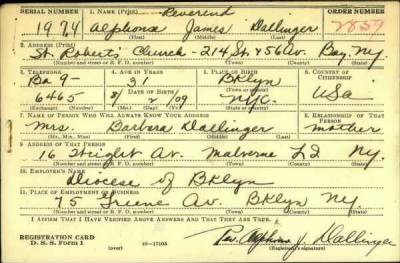 SERIAL NUMBER 1. NAME (Print) Reverend ORDER NUMBER
1974 Alphonse James Dallinger 2859
(First) (Middle) (Last)
2. ADDRESS (Print)
St. Roberts Church - 214 St. & 56 Av. Bay. NY.
(Number and street or R. F. D. number) (Town) (County) (State)
3. TELEPHONE 4. AGE IN YEARS 5. PLACE OF BIRTH 6. COUNTRY OF CITIZENSHIP
Ba 9- 31 BKlyn
DATE OF BIRTH (Town or county)
6465 2 09 NYC. USa
(Exchange) (Number) (Mo.) (Day) (Yr.) (State or country)
7. NAME OF PERSON WHO WILL ALWAYS KNOW YOUR ADDRESS 8. RELATIONSHIP OF THAT PERSON
Mrs. Barbara Dallinger mother
(Mr., Mrs., Miss) (First) (Middle) (Last)
9. ADDRESS OF THAT PERSON
16 Av. Malverne L.I. NY.
(Number and street or R. F. D. number) (Town) (County) (State)
10. EMPLOYER'S NAME
Diocese of BKlyn
11. PLACE OF EMPLOYMENT OR BUSINESS
75 Greene Av. BKlyn NY.
(Number and street or R. F. D. number) (Town) (County) (State)
I AFFIRM THAT I HAVE VERIFIED ABOVE ANSWERS AND THAT THEY ARE TRUE.
REGISTRATION CARD
D. S. S. Form 1 (over) 16-17105 Rev. Alphonse J. Dallinger
(Registrant's signature)